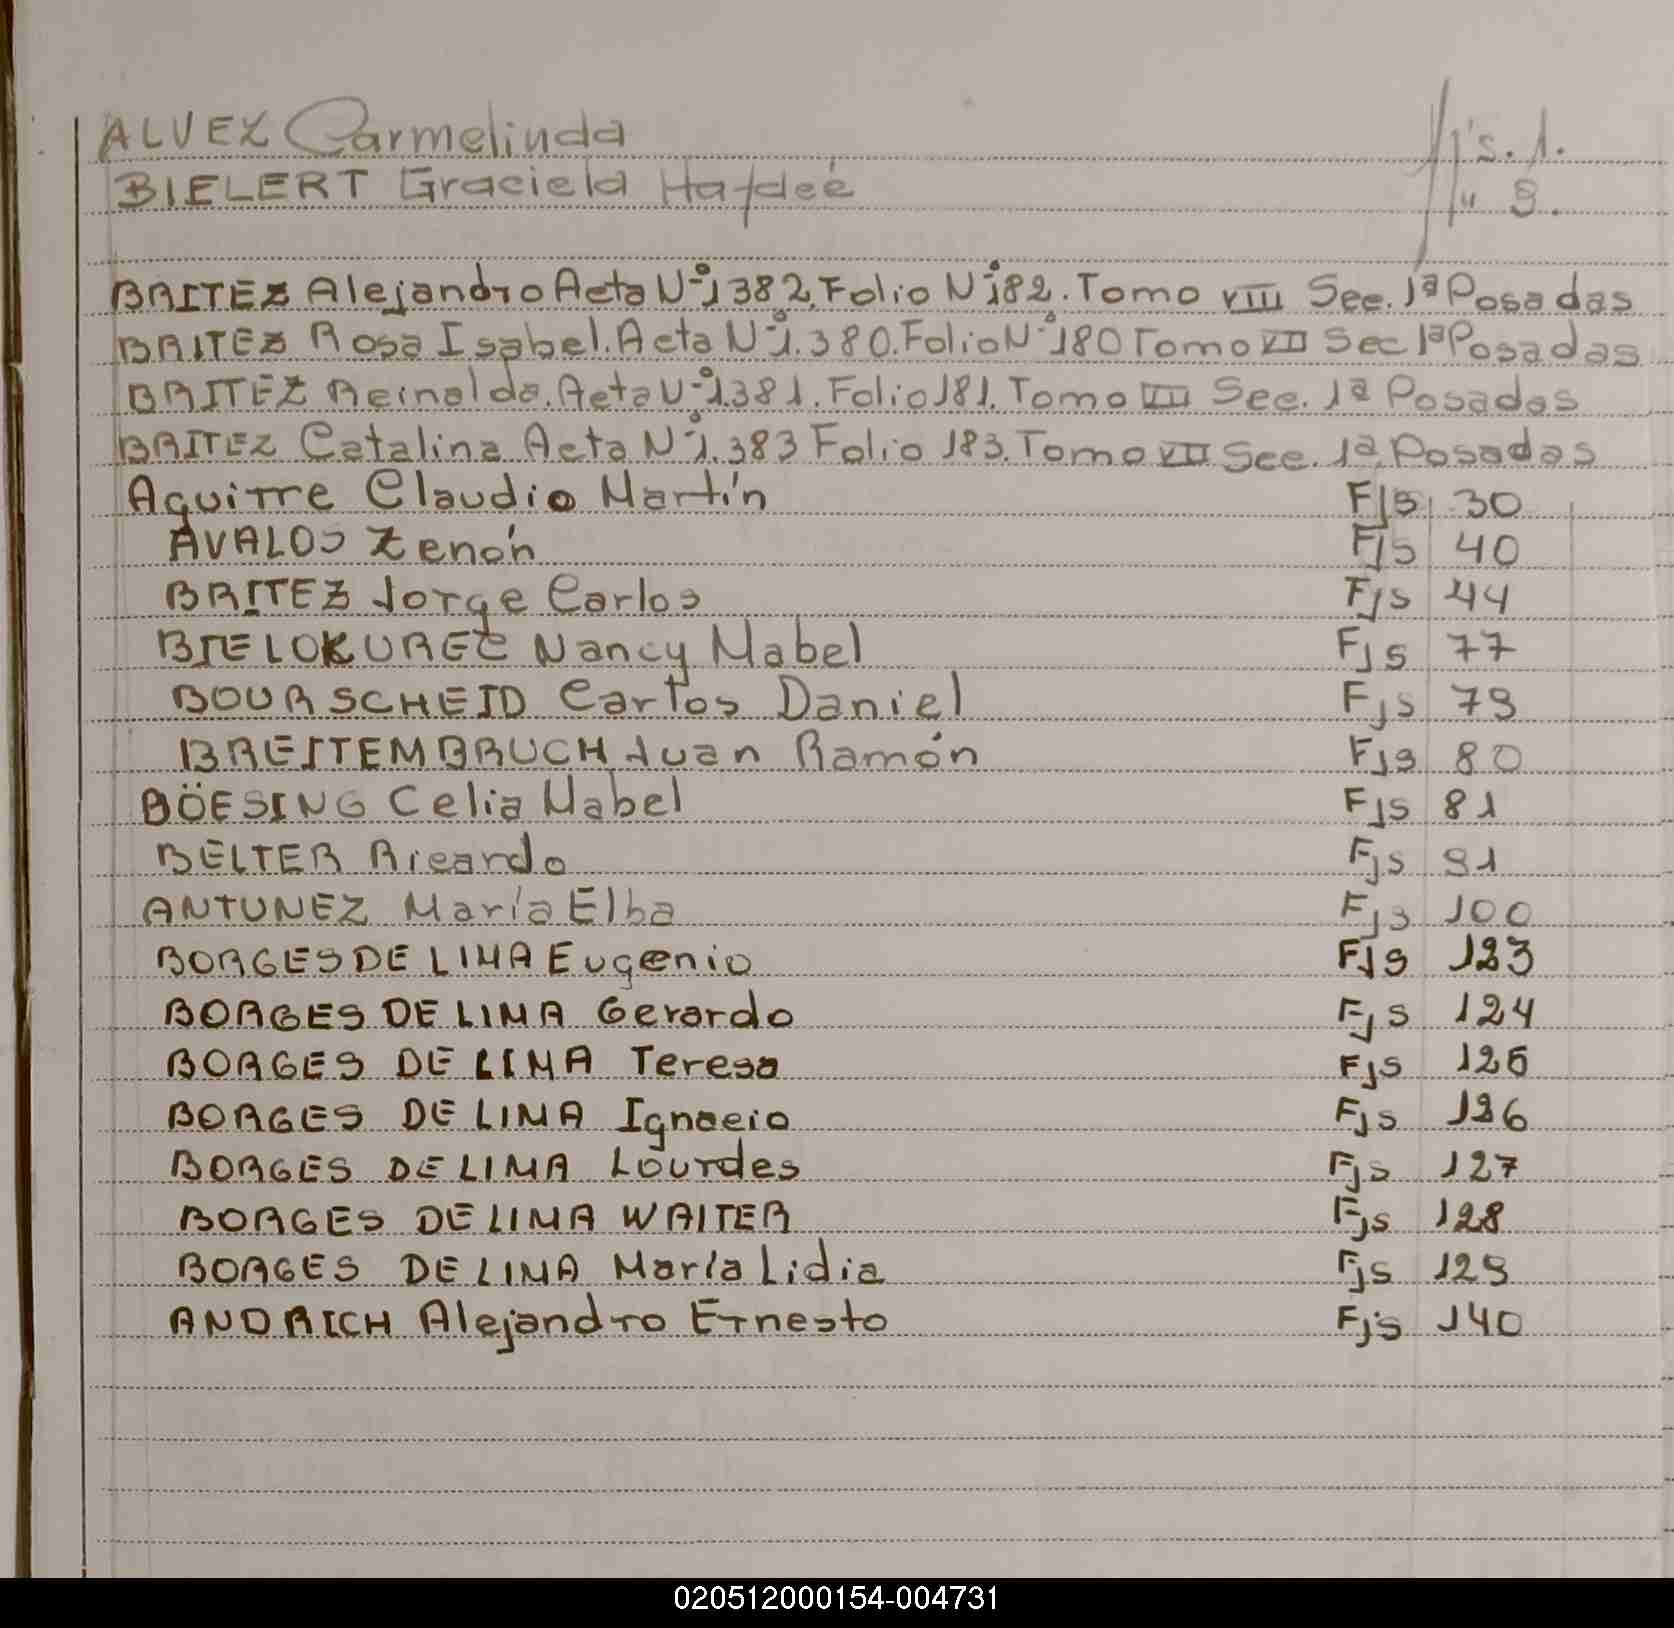 ALVEZ Carmelinda Fj's. 1.
BIELERT Graciela Haydeé " 9.
BRITEZ Alejandro Acta Nº 1382. Folio Nº 182. Tomo VIII Sec. 1ª Posadas
BRITEZ Rosa Isabel. Acta Nº 1.380. Folio Nº 180 Tomo VII Sec 1ª Posadas
BRITEZ Reinaldo. Acta Nº 1.381. Folio 181. Tomo VII Sec. 1ª Posadas
BRITEZ Catalina Acta Nº 1.383 Folio 183. Tomo VII Sec. 1ª. Posadas
Aguirre Claudio Martín Fjs 30
AVALOS Zenón Fjs 40
BRITEZ Jorge Carlos Fjs 44
BIELOKUREC Nancy Mabel Fjs 77
BOURSCHEID Carlos Daniel Fjs 79
BREITEMBRUCH Juan Ramón Fjs 80
BÖESING Celia Mabel Fjs 81
BELTER Ricardo Fjs 91
ANTUNEZ María Elba Fjs 100
BORGES DE LIMA Eugenio Fjs 123
BORGES DE LIMA Gerardo Fjs 124
BORGES DE LIMA Teresa Fjs 125
BORGES DE LIMA Ignacio Fjs 126
BORGES DE LIMA Lourdes Fjs 127
BORGES DE LIMA WALTER Fjs 128
BORGES DE LIMA María Lidia Fjs 129
ANDRICH Alejandro Ernesto Fjs 140
020512000154-004731